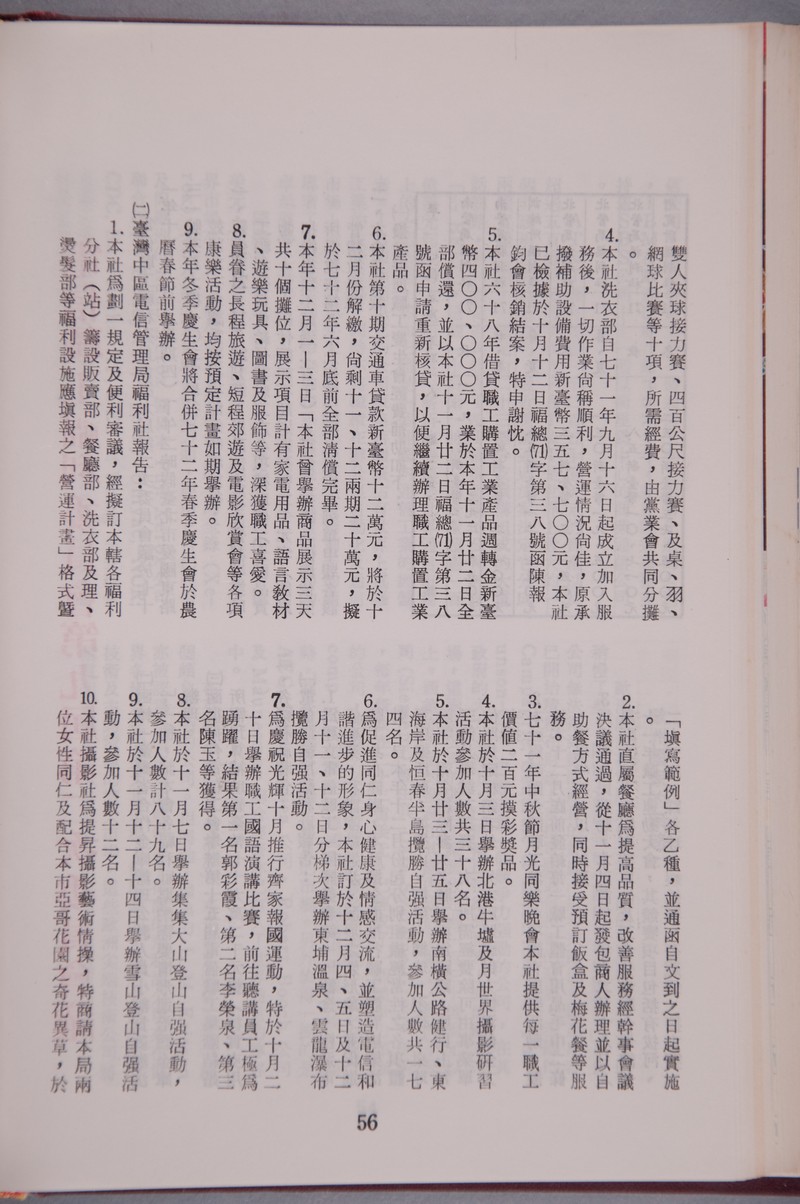 雙人夾球接力賽、四百公尺接力賽、及桌、羽、
網球比賽等十項，所需經費，由黨業會共同分攤
。
4.本社洗衣部自七十一年九月十六日起成立加入服
務後，一切作業尚稱順利，營運情況尚佳，原承
撥補助設備費用新臺幣三五七、七〇〇元，本社
已檢據於十月十二日福總(71)字第三八號函陳報
鈞會核銷結案，特申謝忱。
5.本社六十八年借貸職工購置工業產品週轉金新臺
幣四〇〇、〇〇〇元，業於本年十一月廿二日全
部償還，並以本社十一月廿二日福總(71)字第三八
號函申請重新核貸，以便繼續辦理職工購置工業
產品。
6.本社第十期交通車貸款新臺幣十二萬元，將於十
二月份解繳，尚剩十一、十二兩期二十萬元，擬
於七十二年六月底前全部清償完畢。
7.本年十二月一—三日「本社曾舉辦商品展示三天
共十個攤位，展示項目計有家電用品、語言教材
、遊樂玩具、圖書及服飾等，深獲職工喜愛。
8.員眷之長程旅遊、短程郊遊及電影欣賞會等各項
康樂活動，均按預定計畫如期舉辦。
9.本年冬季慶生會將合併七十二年春季慶生會於農
曆春節前舉辦。
㈡臺灣中區電信管理局福利社報告：
1.本社爲劃一規定及便利審議，經擬訂本轄各福利
分社（站）籌設販賣部、餐廳部、洗衣部及理、
燙髮部等福利設施應塡報之「營運計畫」格式暨
「塡寫範例」各乙種，並通函自文到之日起實施
。
2.本社直屬餐廳爲提高品質，改善服務經幹事會議
決議通過，從十一月四日起發包商人辦理並以自
助餐方式經營，同時接受預訂飯盒及梅花餐等服
務。
3.七十一年中秋節月光同樂晚會本社提供每一職工
價值二百元摸彩獎品。
4.本社於十月三日舉辦北港牛墟及月世界攝影硏習
活動參加人數共三十八名。
5.本社於十月廿三—廿五日舉辦南橫公路健行、東
海岸及恒春半島攬勝自强活動，參加人數共一七
四名。
6.爲促進同仁身心健康及情感交流，並塑造電信和
諧進步的形象，本社訂於十二月四、五日及十二
月十一、十二日分梯次舉辦東埔溫泉、雲龍瀑布
攬勝自强活動。
7.爲慶祝光輝十月推行齊家報國運動，特於十月二
十日舉辦職工國語演講比賽，前往聽講員工極爲
踴躍，結果第一名郭彩霞、第二名李榮泉、第三
名陳玉等獲得。
8.本社於十一月七日舉辦集集大山登山自强活動，
參加人數計八十九名。
9.本社於十一月十二—十四日舉辦雪山登山自强活
動，參加人數十二名。
10.本社攝影社爲提昇攝影藝術情操，特商請本局兩
位女性同仁及配合本市亞哥花園之奇花異草，於
56